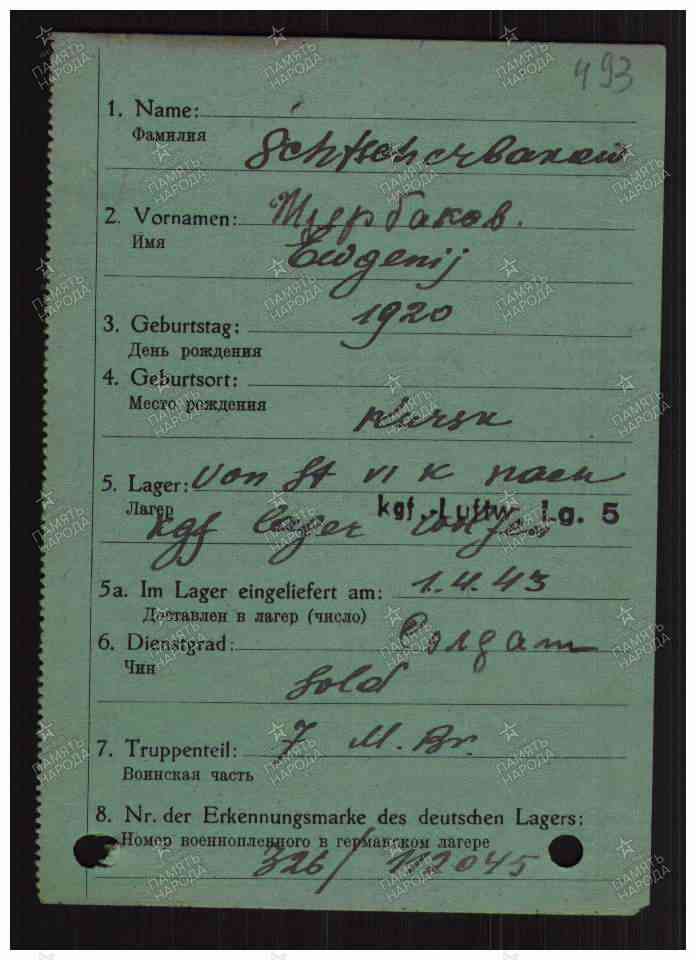 493
1. Name:
Фамилия
Schtscherbakow
2. Vornamen: Щербаков.
Имя
Ewgenij
3. Geburtstag: 1920
День рождения
4. Geburtsort:
Место рождения
Kursk
5. Lager: von St VI K nach
Лагер
kgf.-Luftw. Lg. 5
kgf lager
5a. Im Lager eingeliefert am: 1.4.43
Доставлен в лагер (число)
6. Dienstgrad: Солдат
Чин
Sold
7. Truppenteil: 7 M. Br.
Воинская часть
8. Nr. der Erkennungsmarke des deutschen Lagers:
Номер военнопленного в германском лагере
326/112045
ПАМЯТЬ НАРОДА